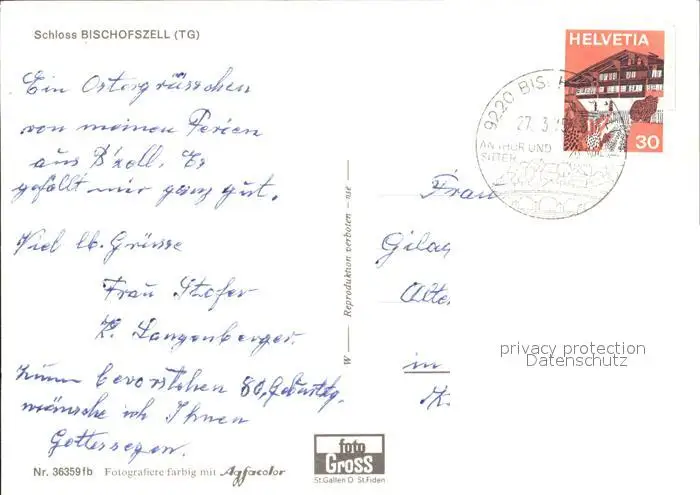 Schloss BISCHOFSZELL (TG)
Ein Ostergrüsschen
von meinen Ferien
aus B'zell. Es
gefällt mir ganz gut.
Viel lb. Grüsse
Frau Stofer
K. Langenberger.
zum bevorstehen 80. Geburtstg.
wünsche ich Ihnen
Gottessegen.
Nr. 36359fb Fotografiere farbig mit Agfacolor
W — Reproduktion verboten - use
foto
GROSS
St.Gallen O St.Fiden
HELVETIA
30
9220 BIS
27. 3.
AN THUR UND
SITTER
Frau
in
privacy protection
Datenschutz